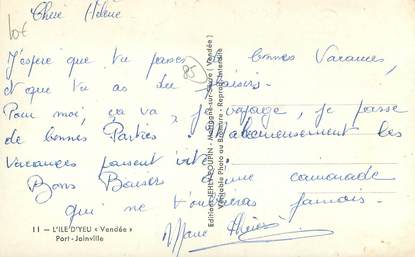 10€
Chère Hélène
J'espère que tu passes de bonnes Vacances,
et que tu as du plaisir.
85
Pour moi, ça va, je voyage, je passe
de bonnes Parties, malheureusement les
vacances passent vite.
Bons Baisers d'une camarade
qui ne t'oubliera jamais.
Marie
11 — L'ILE D'YEU « Vendée »
Port-Joinville
Véritable Photo au Bromure - Reprod. interdite